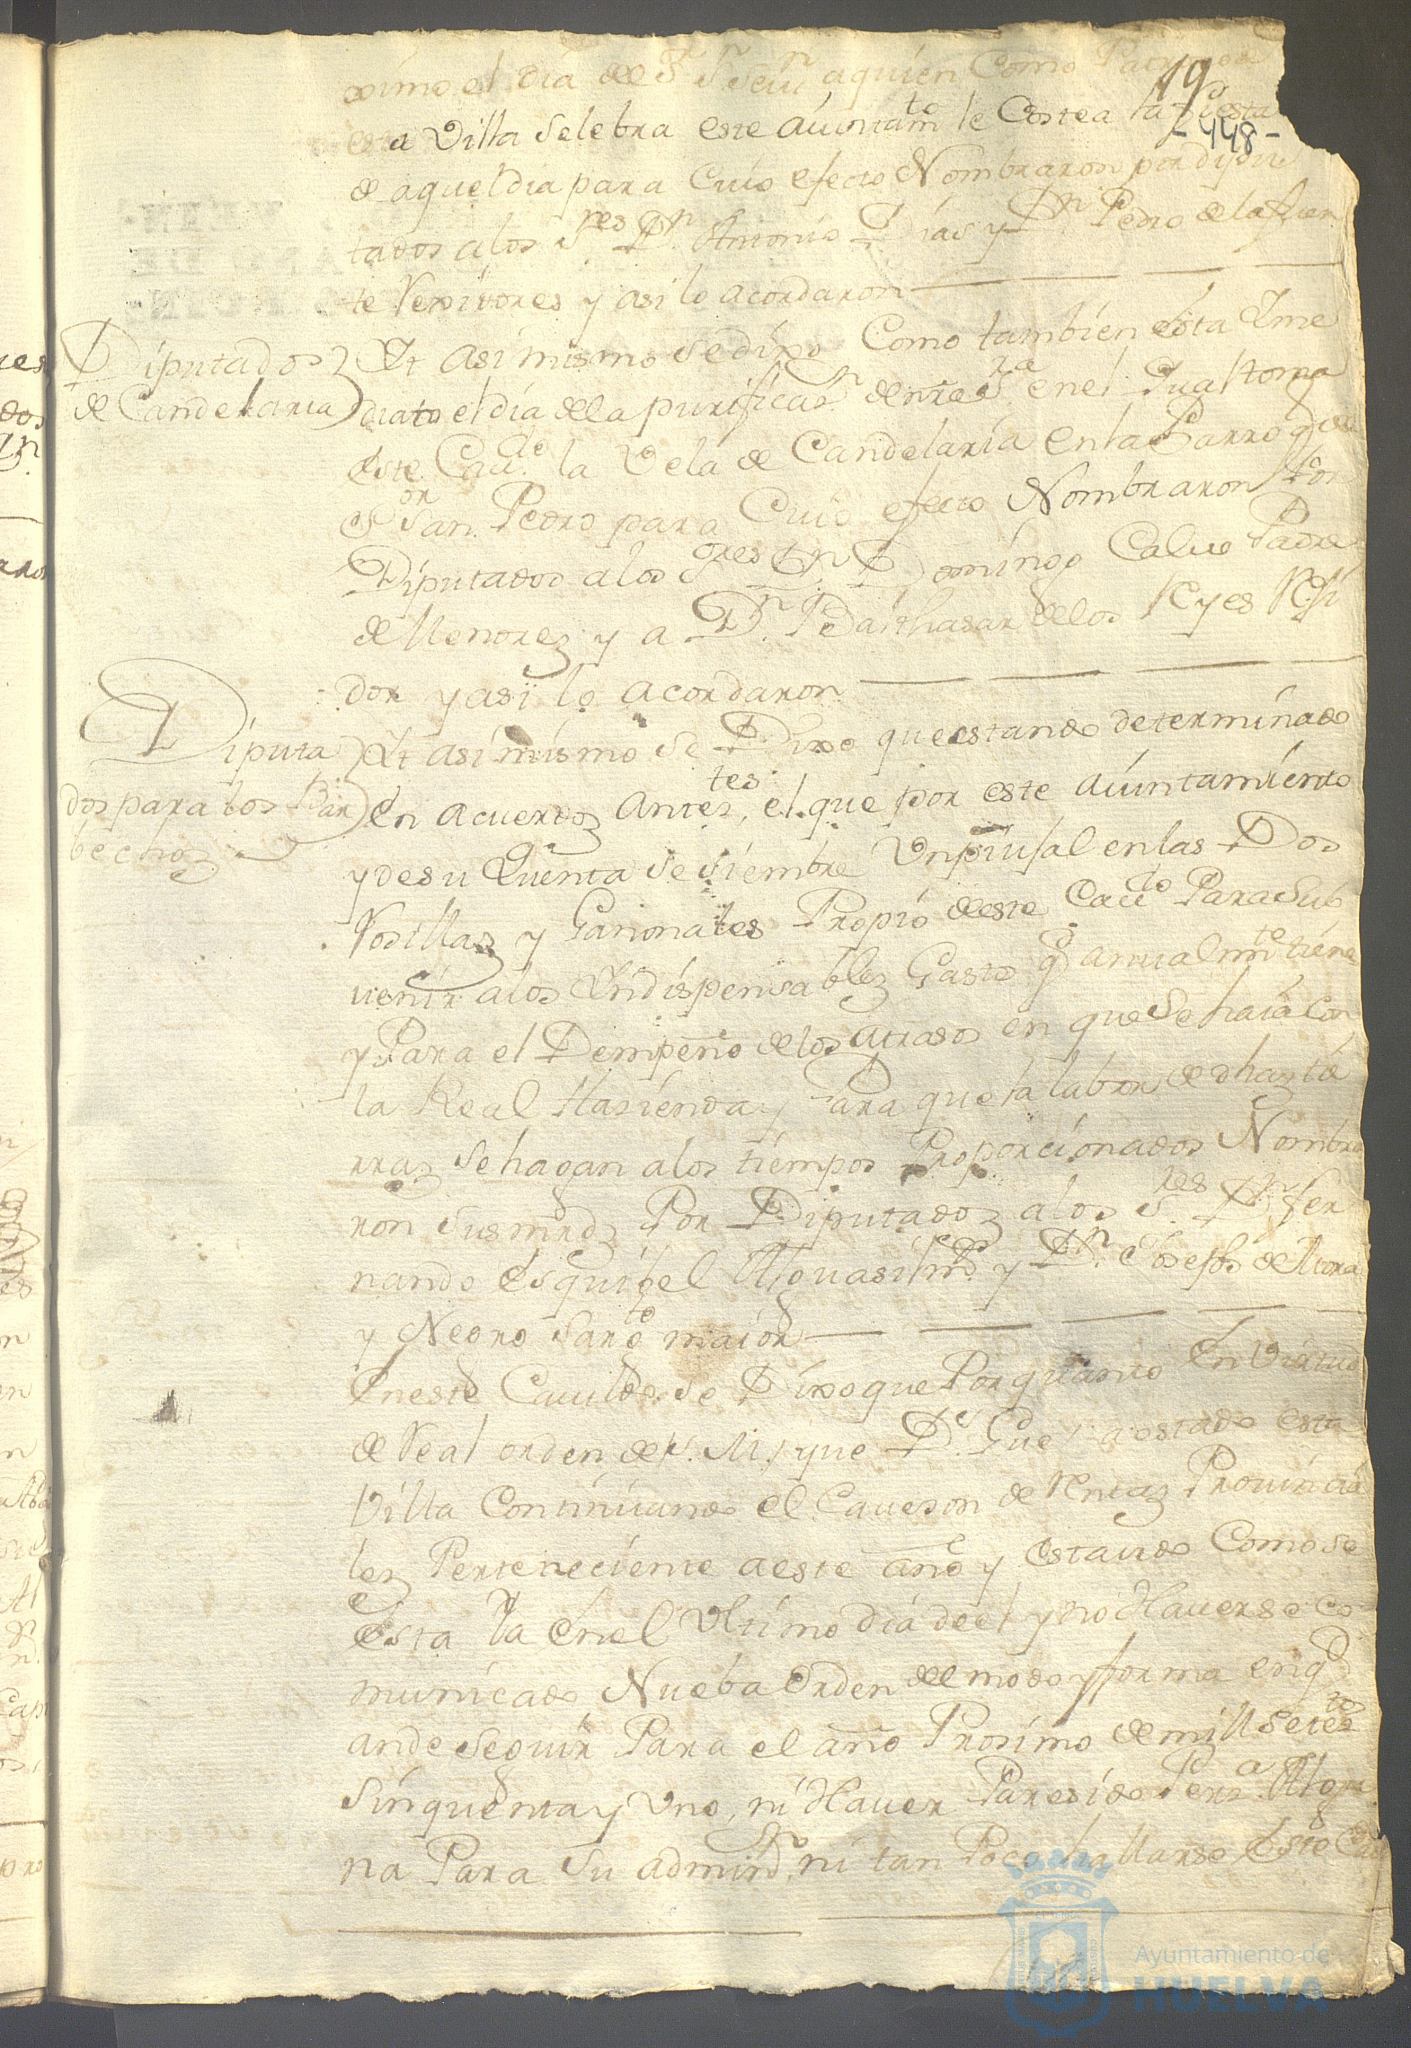 19
-448-
ximo el dia de Sr Sn Sevn aquien Como Patrono de
esta Villa Selebra este Aiuntamto le Costea la fiesta
de aquel dia para Cuio efecto Nombraron por dipu
tados alos Sres Dn Antonio Dias y Dn Pedro de la fuen
te Rexidores y asi lo acordaron
Diputados
de Candelaria
Et asi mismo se dixo Como tambien esta Ime
diato el dia de la purificasn de nra Sra en el Qual toma
este Cavdo la Vela de Candelaria en la Parroqa de
Sor San Pedro para Cuio efecto Nombraron Por
Diputados alos Sres Dn Domingo Calvo Padre
de Menores y a Dn Balthasar de los Reyes Rexi
dor y asi lo acordaron
Diputa
dos para los Bar
bechos
Et asi mismo se Dixo que estando determinado
En acuerdos Antes, tes el que por este Aiuntamiento
y de su Quenta se siembre Un piujal en las Dos
Rosillas y Gañonales Propio deste Cavdo Para Sub
venir alos Indispensables Gastos q anualmte tiene
y Para el Dempeño de los atrasos en que se haia con
la Real Hasienda y Para que la labor de dhas tie
rras se hagan alos tiempos Proporcionados Nombra
ron Susmrds Por Diputados alos Sres Dn fer
nando Esquibel Alguasil mor y Dn Joseph de Mora
y Negro Sargto maior
En este Cavildo se Dixo que Por quanto En Virtud
de Real orden de S. M. que Ds Gue a estado esta
Villa Continuando el Caveson de Rentas Provincia
les Perteneciente a este año y estando Como se
Esta Ya en el Ultimo dia de el y no Haverse co
municado Nueba Orden del modo y forma en q
ande Seguir Para el año Prosimo de mill Setetos
Sinquenta y Uno, ni Haver Paresido Perna Algu
na Para Su adminon ni tan Poco hallarse Este Cav
Ayuntamiento de
HUELVA